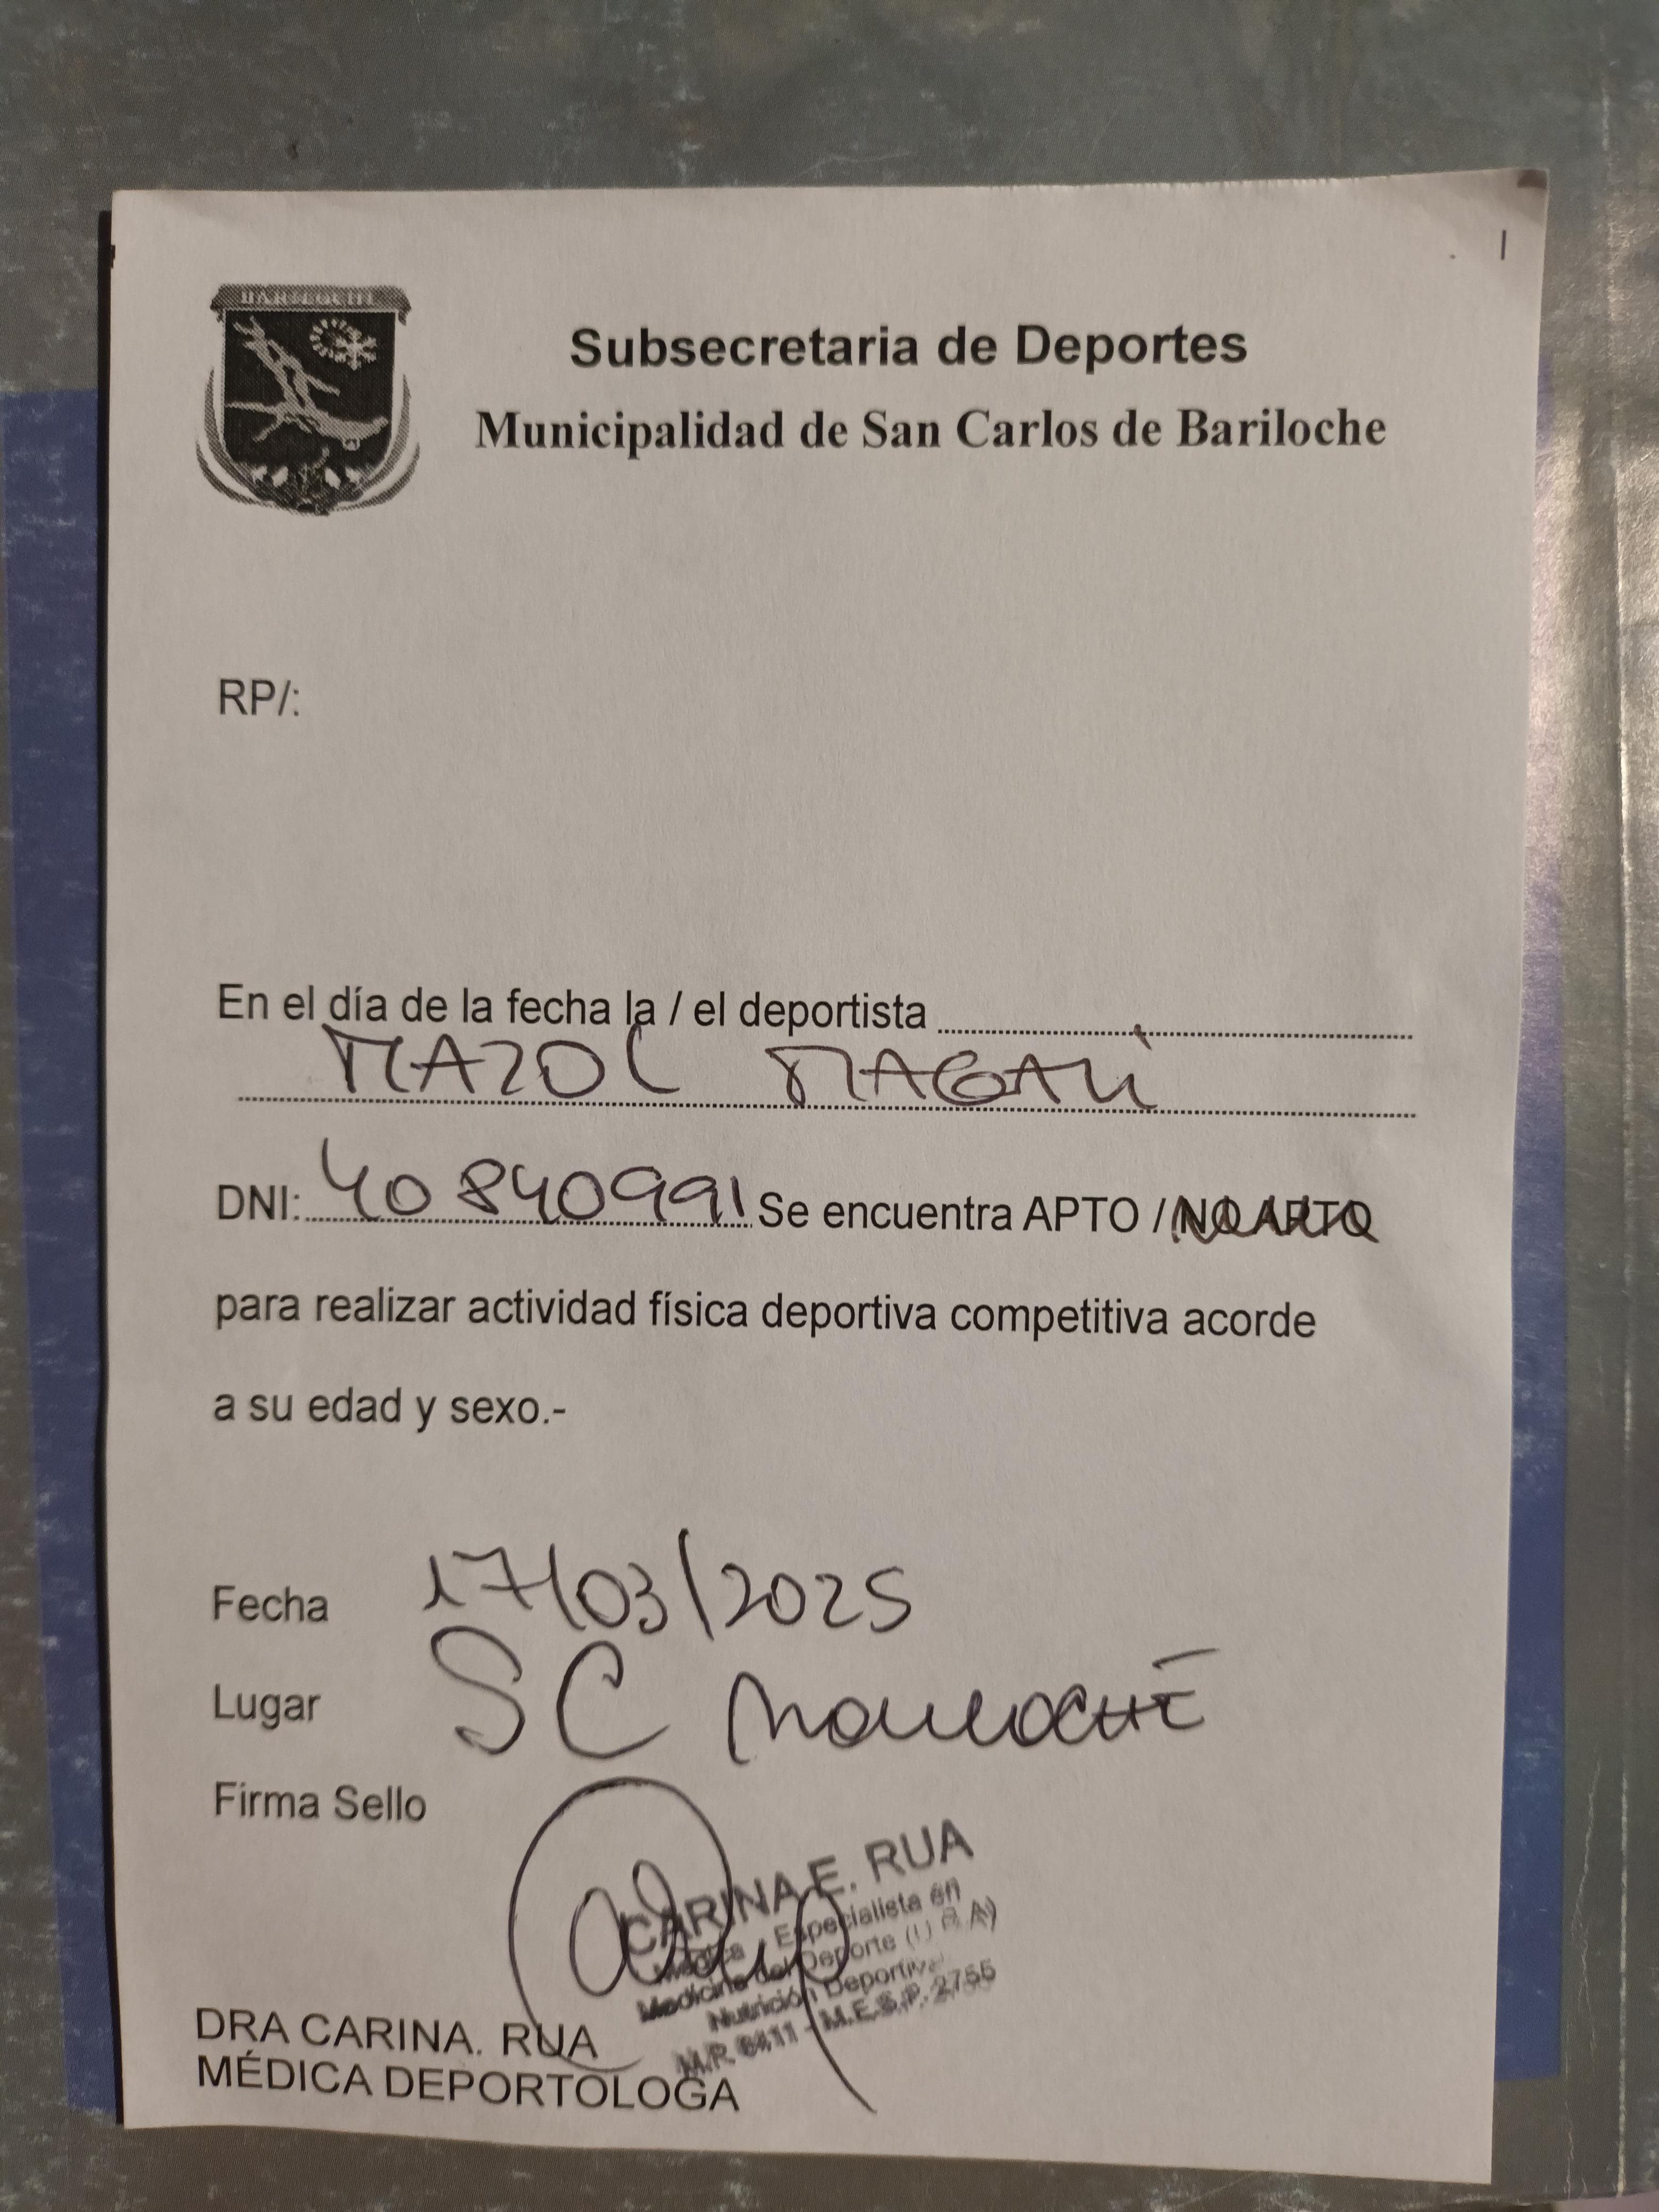 BARILOCHE
Subsecretaria de Deportes
Municipalidad de San Carlos de Bariloche
RP/:
En el día de la fecha la / el deportista
MAZOL MAGALI
DNI: 40840991 Se encuentra APTO / NO APTO
para realizar actividad física deportiva competitiva acorde
a su edad y sexo.-
Fecha 17/03/2025
Lugar SC Bariloche
Firma Sello
CARINA E. RUA
Médica Especialista en
Medicina del Deporte (U.B.A)
Nutrición Deportiva
M.P. 6411 - M.E.S.P. 2755
DRA CARINA. RUA
MÉDICA DEPORTOLOGA